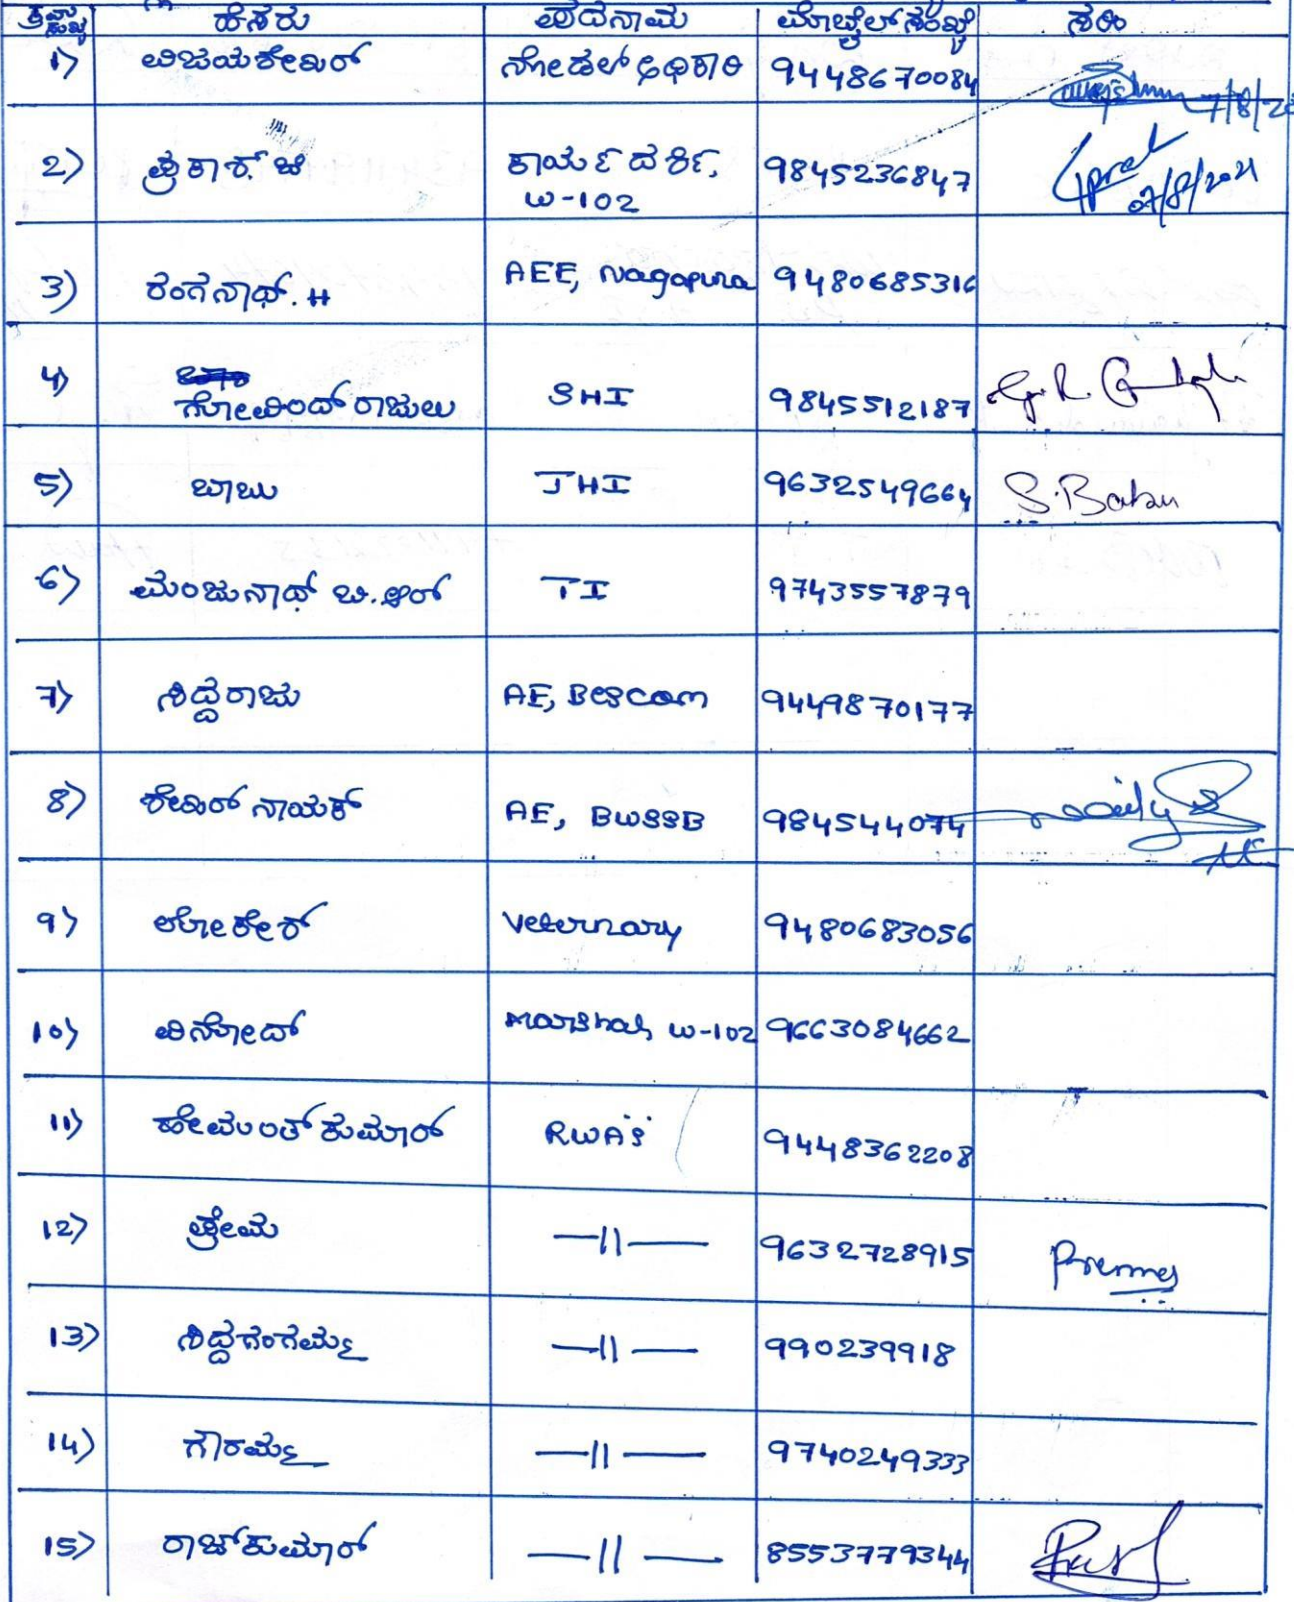 ಕ್ರಮ ಸಂಖ್ಯೆ ಹೆಸರು ಪದನಾಮ ಮೊಬೈಲ್ ಸಂಖ್ಯೆ ಸಹಿ
1) ವಿಜಯಶೇಖರ್ ನೋಡಲ್ ಅಧಿಕಾರಿ 9448670084 7/8/2
2) ಪ್ರಕಾಶ್ ಜಿ ಕಾರ್ಯದರ್ಶಿ, 9845236847 07/8/2021
W-102
3) ರಂಗನಾಥ್. H AEE, Nagapura 9480685316
4) ಗೋವಿಂದ್ ರಾಜುಲು SHI 9845512187
5) ಬಾಬು JHI 9632549664 S. Babu
6) ಮಂಜುನಾಥ್ ಬಿ.ಆರ್ TI 9743557879
7) ಸಿದ್ದರಾಜು AE, Bescom 9449870177
8) ಶೇಖರ್ ನಾಯಕ್ AE, BWSSB 984544074
9) ಲೋಕೇಶ್ Veterinary 9480683056
10) ವಿನೋದ್ Marshal, W-102 9663084662
11) ಹೇಮಂತ್ ಕುಮಾರ್ RWA's 9448362208
12) ಪ್ರೇಮ —11— 9632728915 Prema
13) ಸಿದ್ದಗಂಗಮ್ಮ —11— 990239918
14) ಗೌರಮ್ಮ —11— 9740249333
15) ರಾಜ್ ಕುಮಾರ್ —11— 8553779344